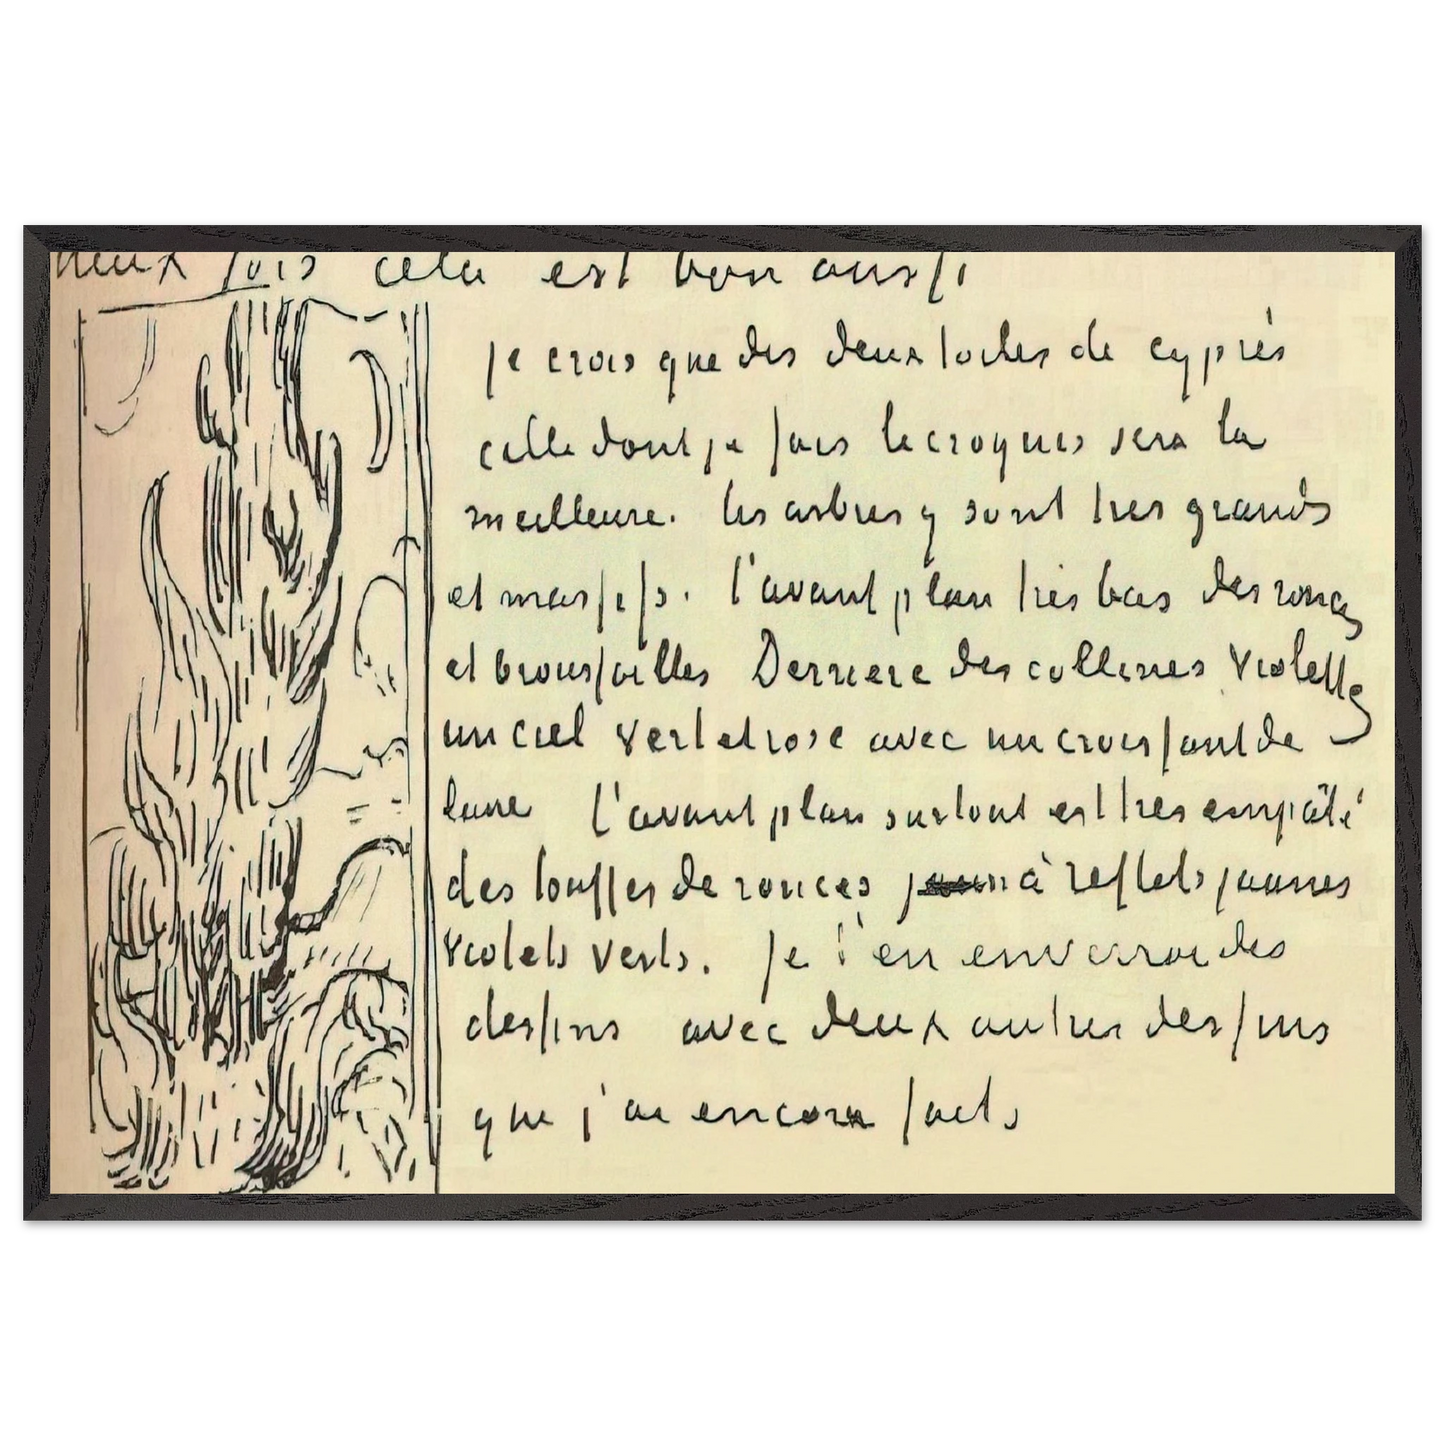 mieux fois cela est bon aussi
je crois que des deux toiles de cyprès
celle dont je fais le croquis sera la
meilleure. les arbres y sont tres grands
et massifs. l'avant plan très bas des ronces
et broussailles Derriere des collines violettes
un ciel vert et rose avec un croissant de
lune l'avant plan surtout est tres empâté
des touffes de ronces à reflets jaunes
violets verts. Je t'en enverrai des
dessins avec deux autres dessins
que j'ai encore faits